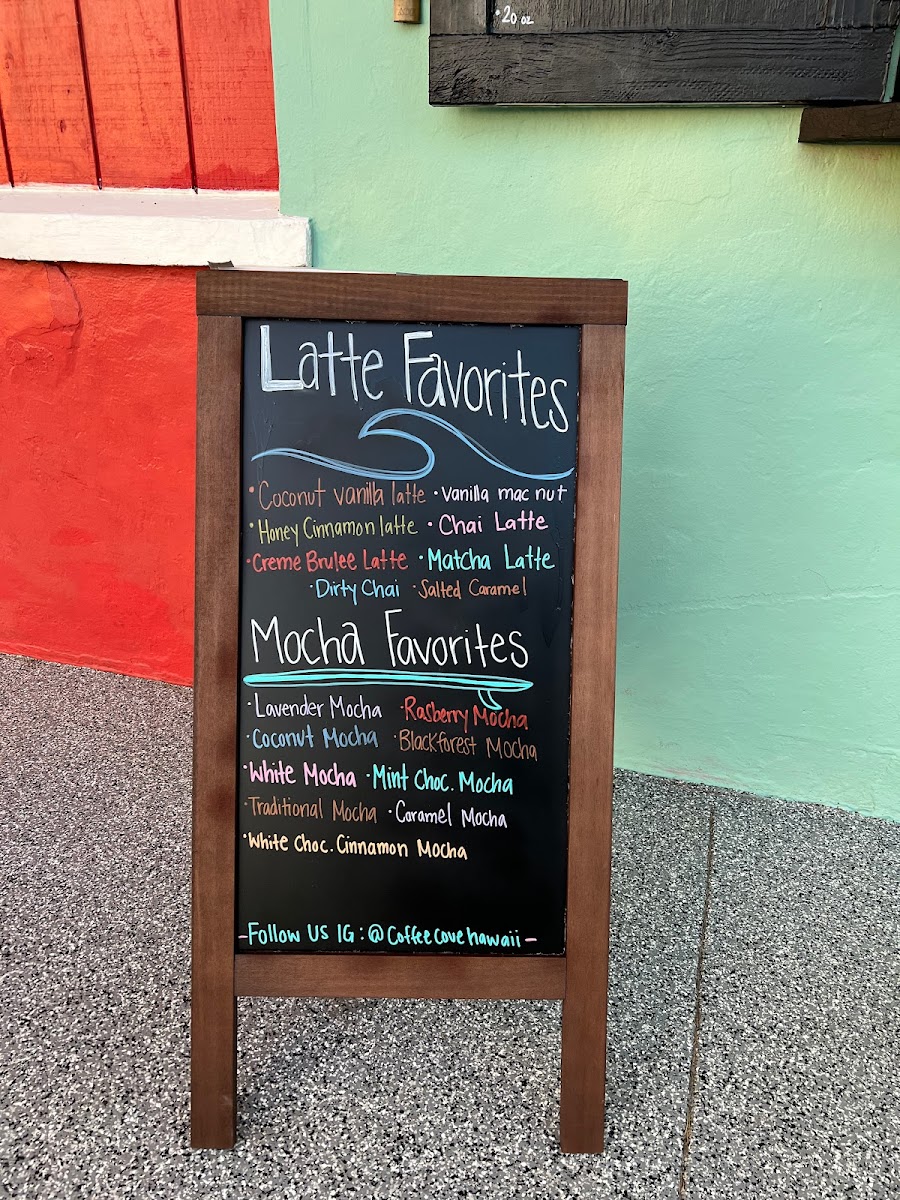 • 20 oz
Latte Favorites
• Coconut vanilla latte • Vanilla mac nut
• Honey Cinnamon latte • Chai Latte
• Creme Brulee Latte • Matcha Latte
• Dirty Chai • Salted Caramel
Mocha Favorites
• Lavender Mocha • Rasberry Mocha
• Coconut Mocha • Blackforest Mocha
• White Mocha • Mint Choc. Mocha
• Traditional Mocha • Caramel Mocha
• White Choc. Cinnamon Mocha
- Follow us IG : @coffeecovehawaii -